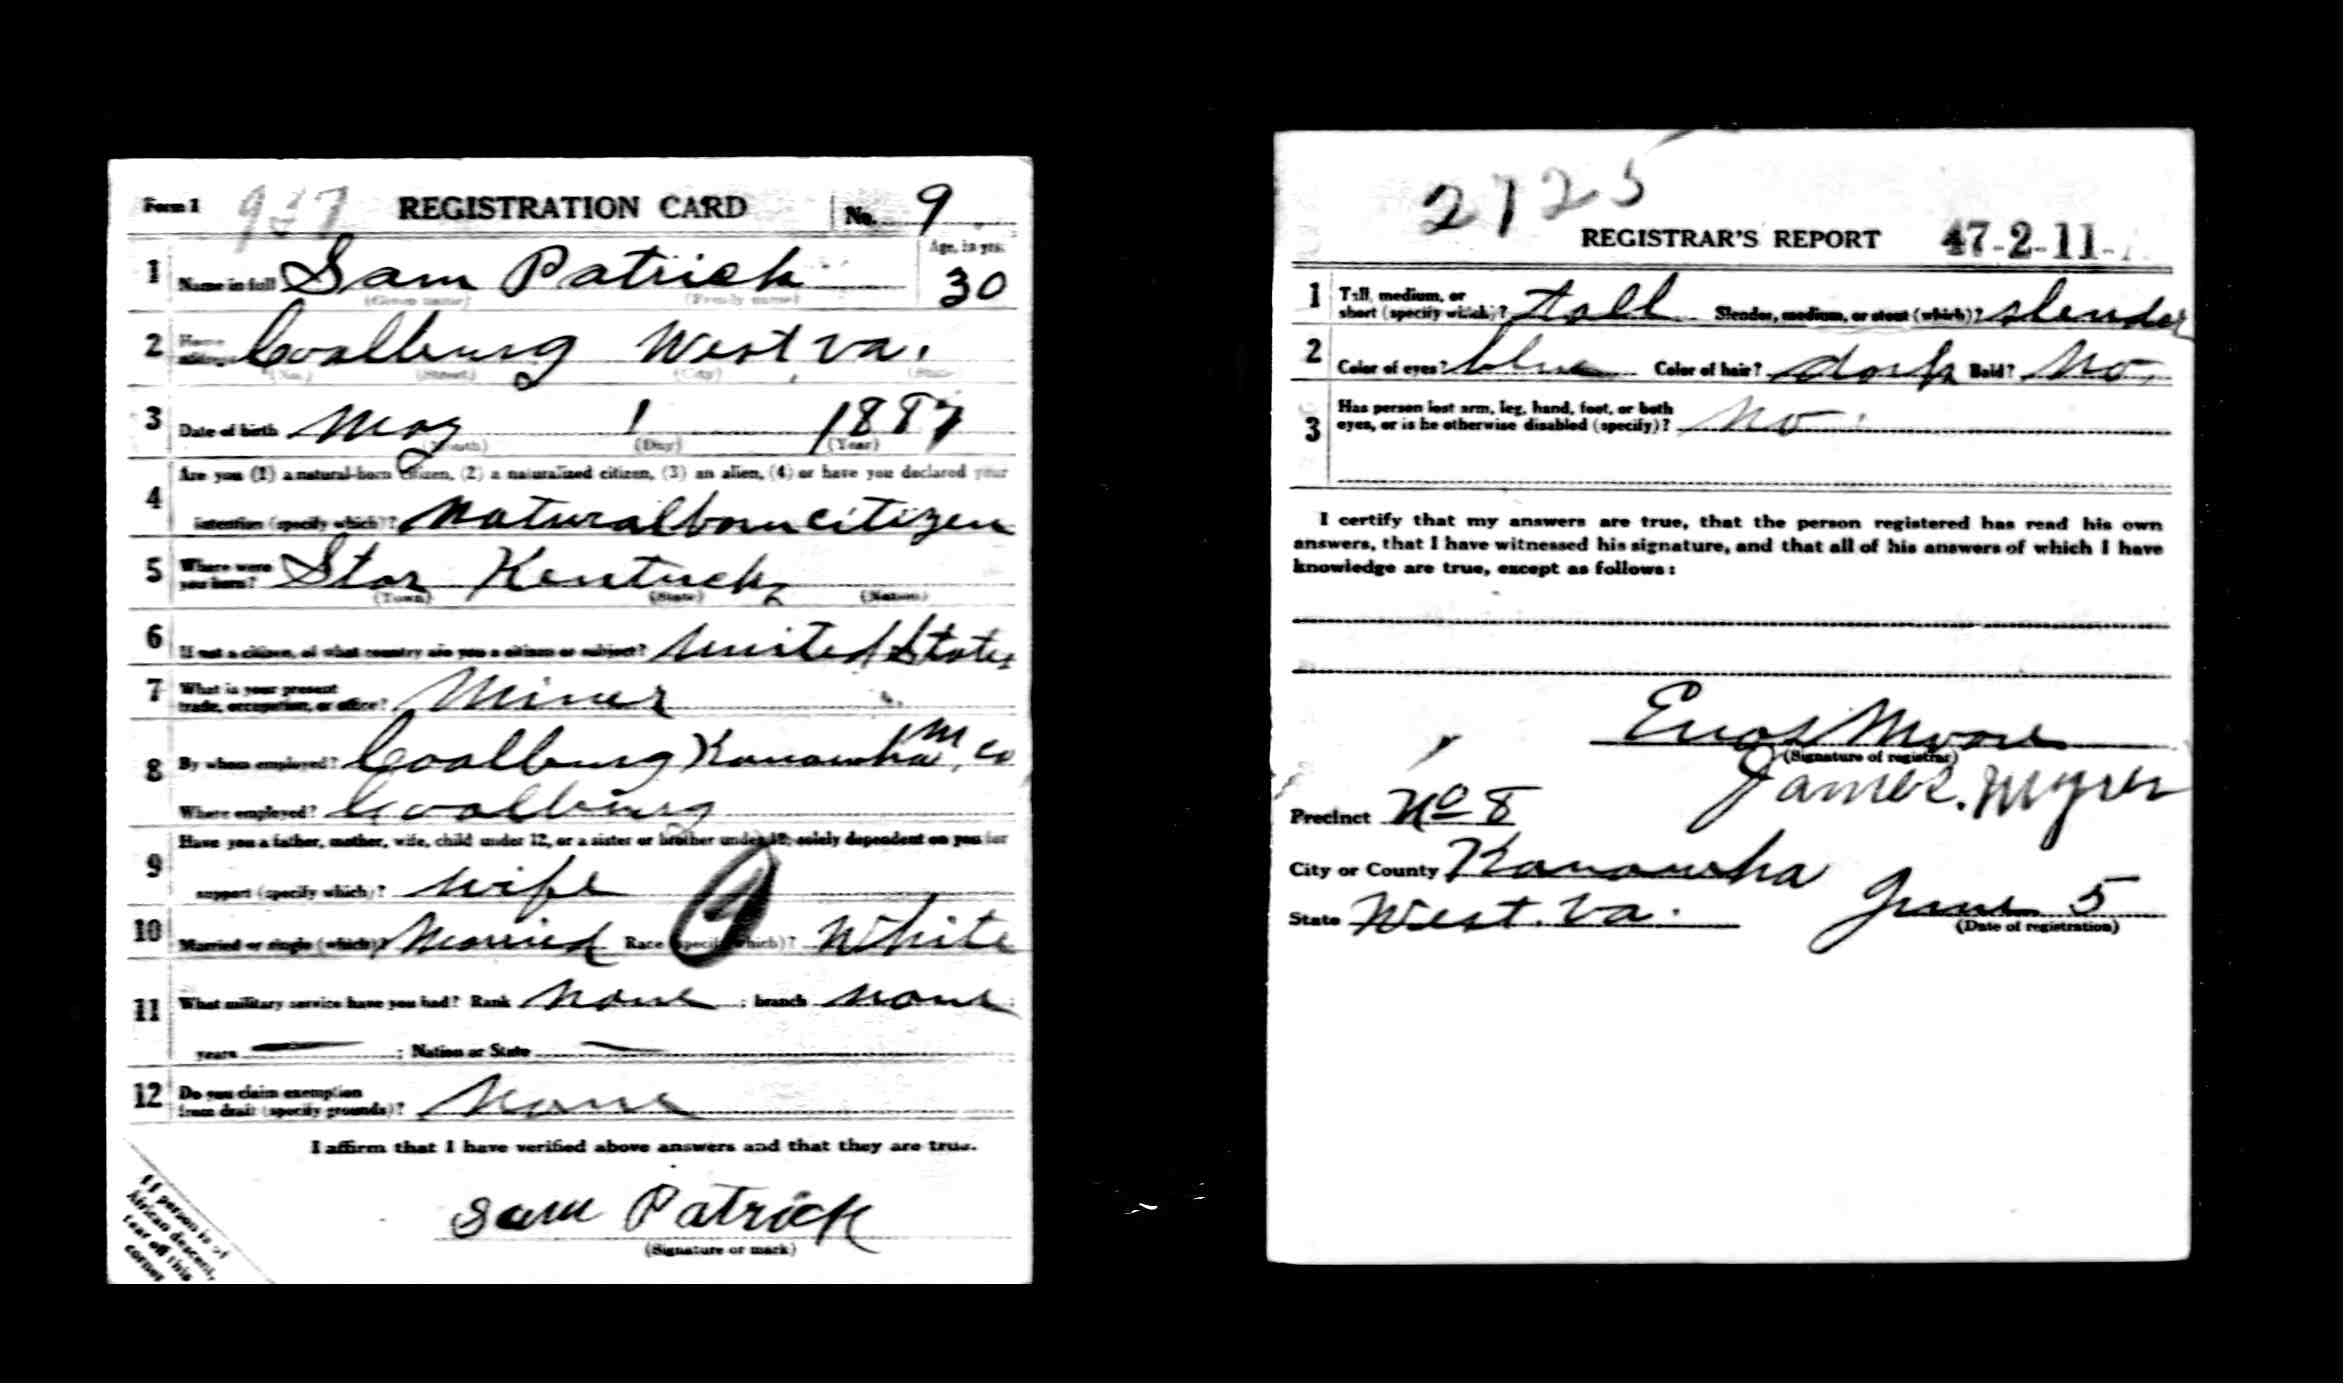 Form 1 937 REGISTRATION CARD No. 9
1 Name in full Sam Patrick Age, in yrs. 30
(Given name) (Family name)
2 Home address Coalburg West va.
(No.) (Street) (City) (State)
3 Date of birth May 1 1887
(Month) (Day) (Year)
Are you (1) a natural-born citizen, (2) a naturalized citizen, (3) an alien, (4) or have you declared your
4 intention (specify which)? natural born citizen
5 Where were you born? Star Kentucky
(Town) (State) (Nation)
6 If not a citizen, of what country are you a citizen or subject? United States
7 What is your present trade, occupation, or office? Miner
8 By whom employed? Coalburg Kanawha M. Co
Where employed? Coalburg
Have you a father, mother, wife, child under 12, or a sister or brother under 12, solely dependent on you for
9 support (specify which)? wife
10 Married or single (which)? Married Race (specify which)? White
11 What military service have you had? Rank none ; branch none ;
years — ; Nation or State —
12 Do you claim exemption from draft (specify grounds)? None
I affirm that I have verified above answers and that they are true.
Sam Patrick
(Signature or mark)
If person is of
African descent,
tear off this
corner
2725
REGISTRAR'S REPORT 47-2-11-
1 Tall, medium, or short (specify which)? tall Slender, medium, or stout (which)? slender
2 Color of eyes? blue Color of hair? dark Bald? No.
3 Has person lost arm, leg, hand, foot, or both eyes, or is he otherwise disabled (specify)? No
I certify that my answers are true, that the person registered has read his own
answers, that I have witnessed his signature, and that all of his answers of which I have
knowledge are true, except as follows:
Enos Moore
(Signature of registrar)
James.
Precinct No 8
City or County Kanawha
State West. Va. June 5
(Date of registration)